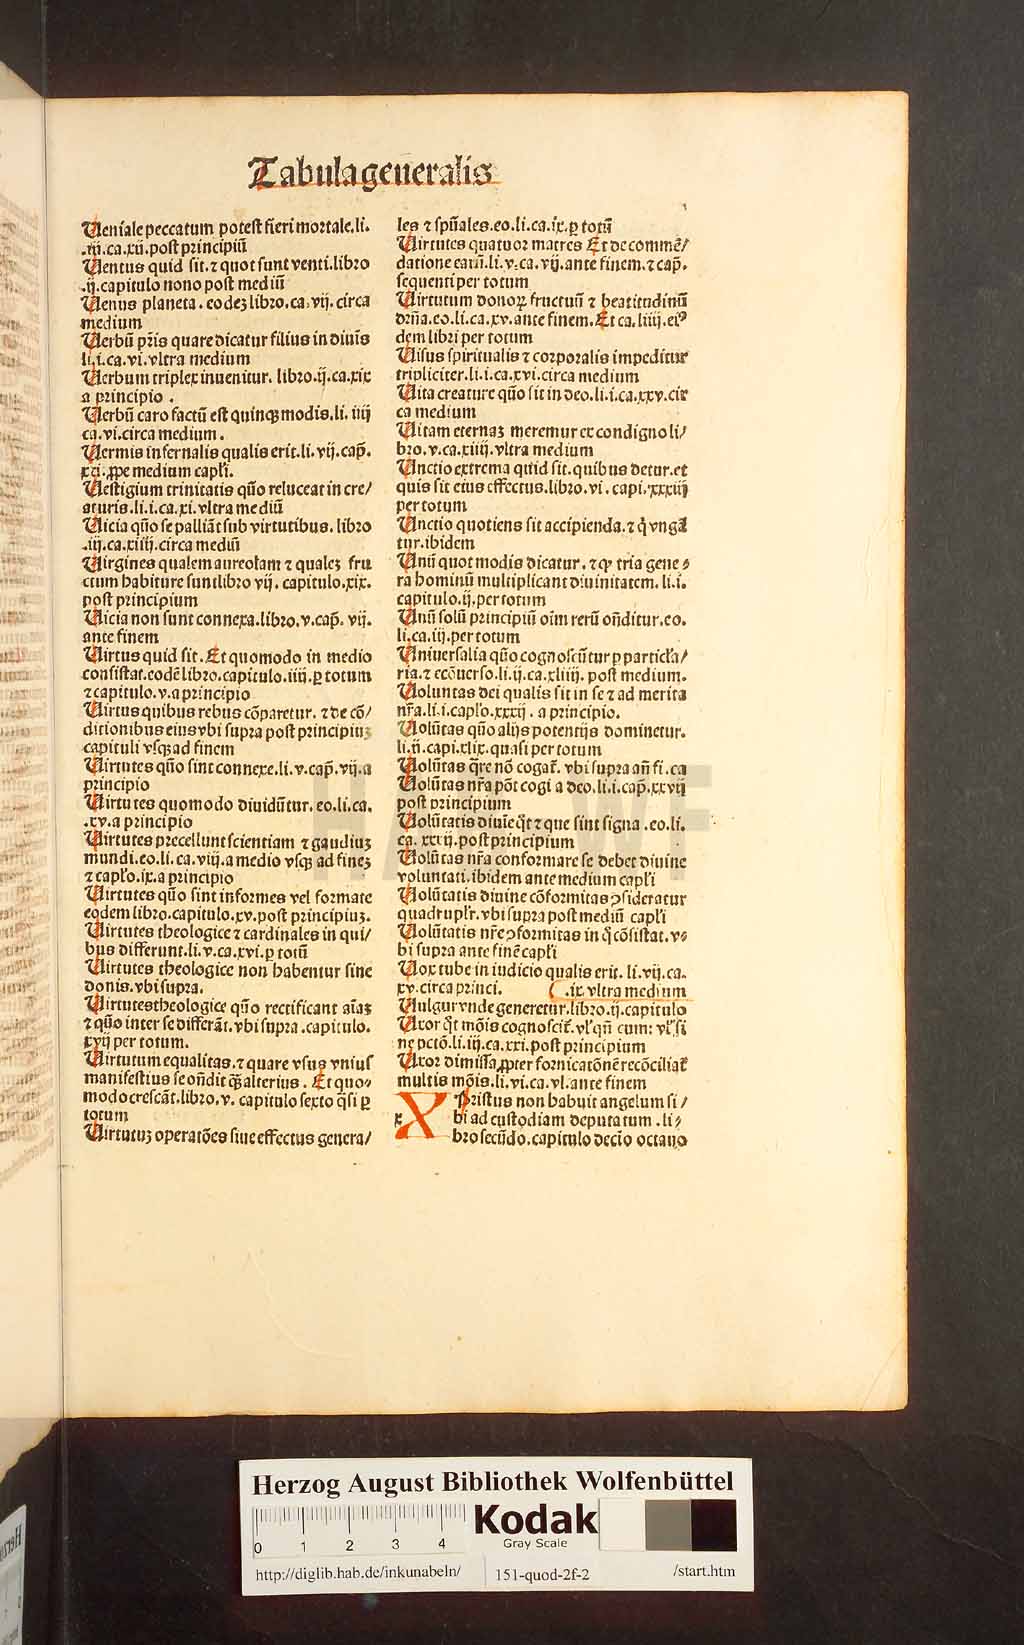 Tabula generalis
Ueniale peccatum potest fieri mortale.li.
.iij.ca.xij.post principiū
Uentus quid sit.⁊ quot sunt venti.libro
.ij.capitulo nono post mediū
Uenus planeta.codeꝫ libro.ca.vij.circa
medium
Uerbū pr̄is quare dicatur filius in diuīs
li.i.ca.vi.vltra medium
Uerbum triplex inuenitur. libro.ij.ca.xix
a principio .
Uerbū caro factū est quinqꝫ modis.li. iiij
ca.vi.circa medium .
Uermis infernalis qualis erit.li.vij.cap̄.
xxi.ꝓpe medium capl̄i.
Uestigium trinitatis qūo reluceat in cre/
aturis.li.i.ca.xi.vltra mediū
Uicia qūo se palliāt sub virtutibus. libro
.iij.ca.xiiij.circa mediū
Uirgines qualem aureolam ⁊ qualeꝫ fru
ctum habiture sunt libro vij. capitulo.xix.
post principium
Uicia non sunt connexa.libro.v.cap̄. vij.
ante finem
Uirtus quid sit.Et quomodo in medio
consistat.eodē libro.capitulo.iiij.ꝑ totum
⁊ capitulo.v.a principio
Uirtus quibus rebus cōparetur.⁊ de cō/
ditionibus eius vbi supra post principiuꝫ
capituli vsqꝫ ad finem
Uirtutes qūo sint connexe.li.v.cap̄.vij.a
principio
Uirtutes quomodo diuidūtur. eo.li.ca.
.xv.a principio
Uirtutes precellunt scientiam ⁊ gaudiuꝫ
mundi.eo.li.ca.viij.a medio vsqꝫ ad fineꝫ
⁊ capl̄o.ix.a principio
Uirtutes qūo sint informes vel formate
eodem libro.capitulo.xv.post principiuꝫ.
Uirtutes theologice ⁊ cardinales in qui/
bus differunt.li.v.ca.xvi.ꝑ totū
Uirtutes theologice non habentur sine
donis.vbi supra.
Uirtutes theologice qūo rectificant aīaꝫ
⁊ qūo inter se differāt.vbi supra.capitulo.
xvij per totum.
Uirtutum equalitas.⁊ quare vsus vnius
manifestius se on̄dit qꝫ alterius . Et quo⸗
modo crescāt.libro.v. capitulo sexto q̄si ꝑ
totum
Uirtutuꝫ operatōes siue effectus genera/
les ⁊ spūales.eo.li.ca.ix.ꝑ totū
Uirtutes quatuor matres Et de commē/
datione earū.li.v.ca.vij.ante finem.⁊ cap̄.
sequenti per totum
Uirtutum donoꝝ fructuū ⁊ beatitudinū
dr̄na.eo.li.ca.xv.ante finem.Et ca.liiij.eiꝰ
dem libri per totum
Uisus spiritualis ⁊ corporalis impeditur
tripliciter.li.i.ca.xvi.circa medium
Uita creature qūo sit in deo.li.i.ca.xxv.cir
ca medium
Uitam eternaꝫ meremur ex condigno li/
bro.v.ca.xiiij.vltra medium
Unctio extrema quid sit.quibus detur.et
quis sit eius effectus.libro.vi. capi.xxxiij
per totum
Unctio quotiens sit accipienda.⁊ q̇ vngāt
tur.ibidem
Unū quot modis dicatur.⁊ qꝙ tria gene⸗
ra hominū multiplicant diuinitatem. li.i.
capitulo.ij.per totum
Unū solū principiū oīm rerū on̄ditur.eo.
li.ca.iij.per totum
Uniuersalia qūo cognoscūtur ꝑ particl̄a/
ria.⁊ ecōuerso.li.ij.ca.xliiij. post medium.
Uoluntas dei qualis sit in se ⁊ ad merita
nr̄a.li.i.capl̄o.xxxij . a principio.
Uolūtas qūo alijs potentijs dominetur.
li.ij.capi.xlix.quasi per totum
Uolūtas q̄re nō cogat̄. vbi supra an̄ fi.ca
Uolūtas nr̄a pōt cogi a deo.li.i.cap̄.xxvij
post principium
Uolūtatis diuīe q̄t ⁊ que sint signa .eo.li.
ca. xxxij.post principium
Uolūtas nr̄a conformare se debet diuine
voluntati.ibidem ante medium capl̄i
Uolūtatis diuine cōformitas ꝯsideratur
quadruplr̄.vbi supra post mediū capl̄i
Uolūtatis nr̄e ꝯformitas in q̇ cōsistat. v⸗
bi supra ante finē capl̄i
Uox tube in iudicio qualis erit. li.vij.ca.
xv.circa princi. .ix vltra medium
Uulgur vnde generetur.libro.ij.capitulo
Uxor q̄t mōis cognoscit̄.vl̓ qn̄ cum: vl̓ si
ne pctō.li.iij.ca.xxi.post principium
Uxor dimissa ꝓpter fornicatōnē recōciliat̄
multis mōis.li.vi.ca.vl.ante finem
X Pristus non habuit angelum si /
bi ad custodiam deputatum .li⸗
bro secūdo.capitulo decīo octauo
HAB WF
Herzog August Bibliothek Wolfenbüttel
0 1 2 3 4
Kodak
Gray Scale
http://diglib.hab.de/inkunabeln/
151-quod-2f-2
/start.htm